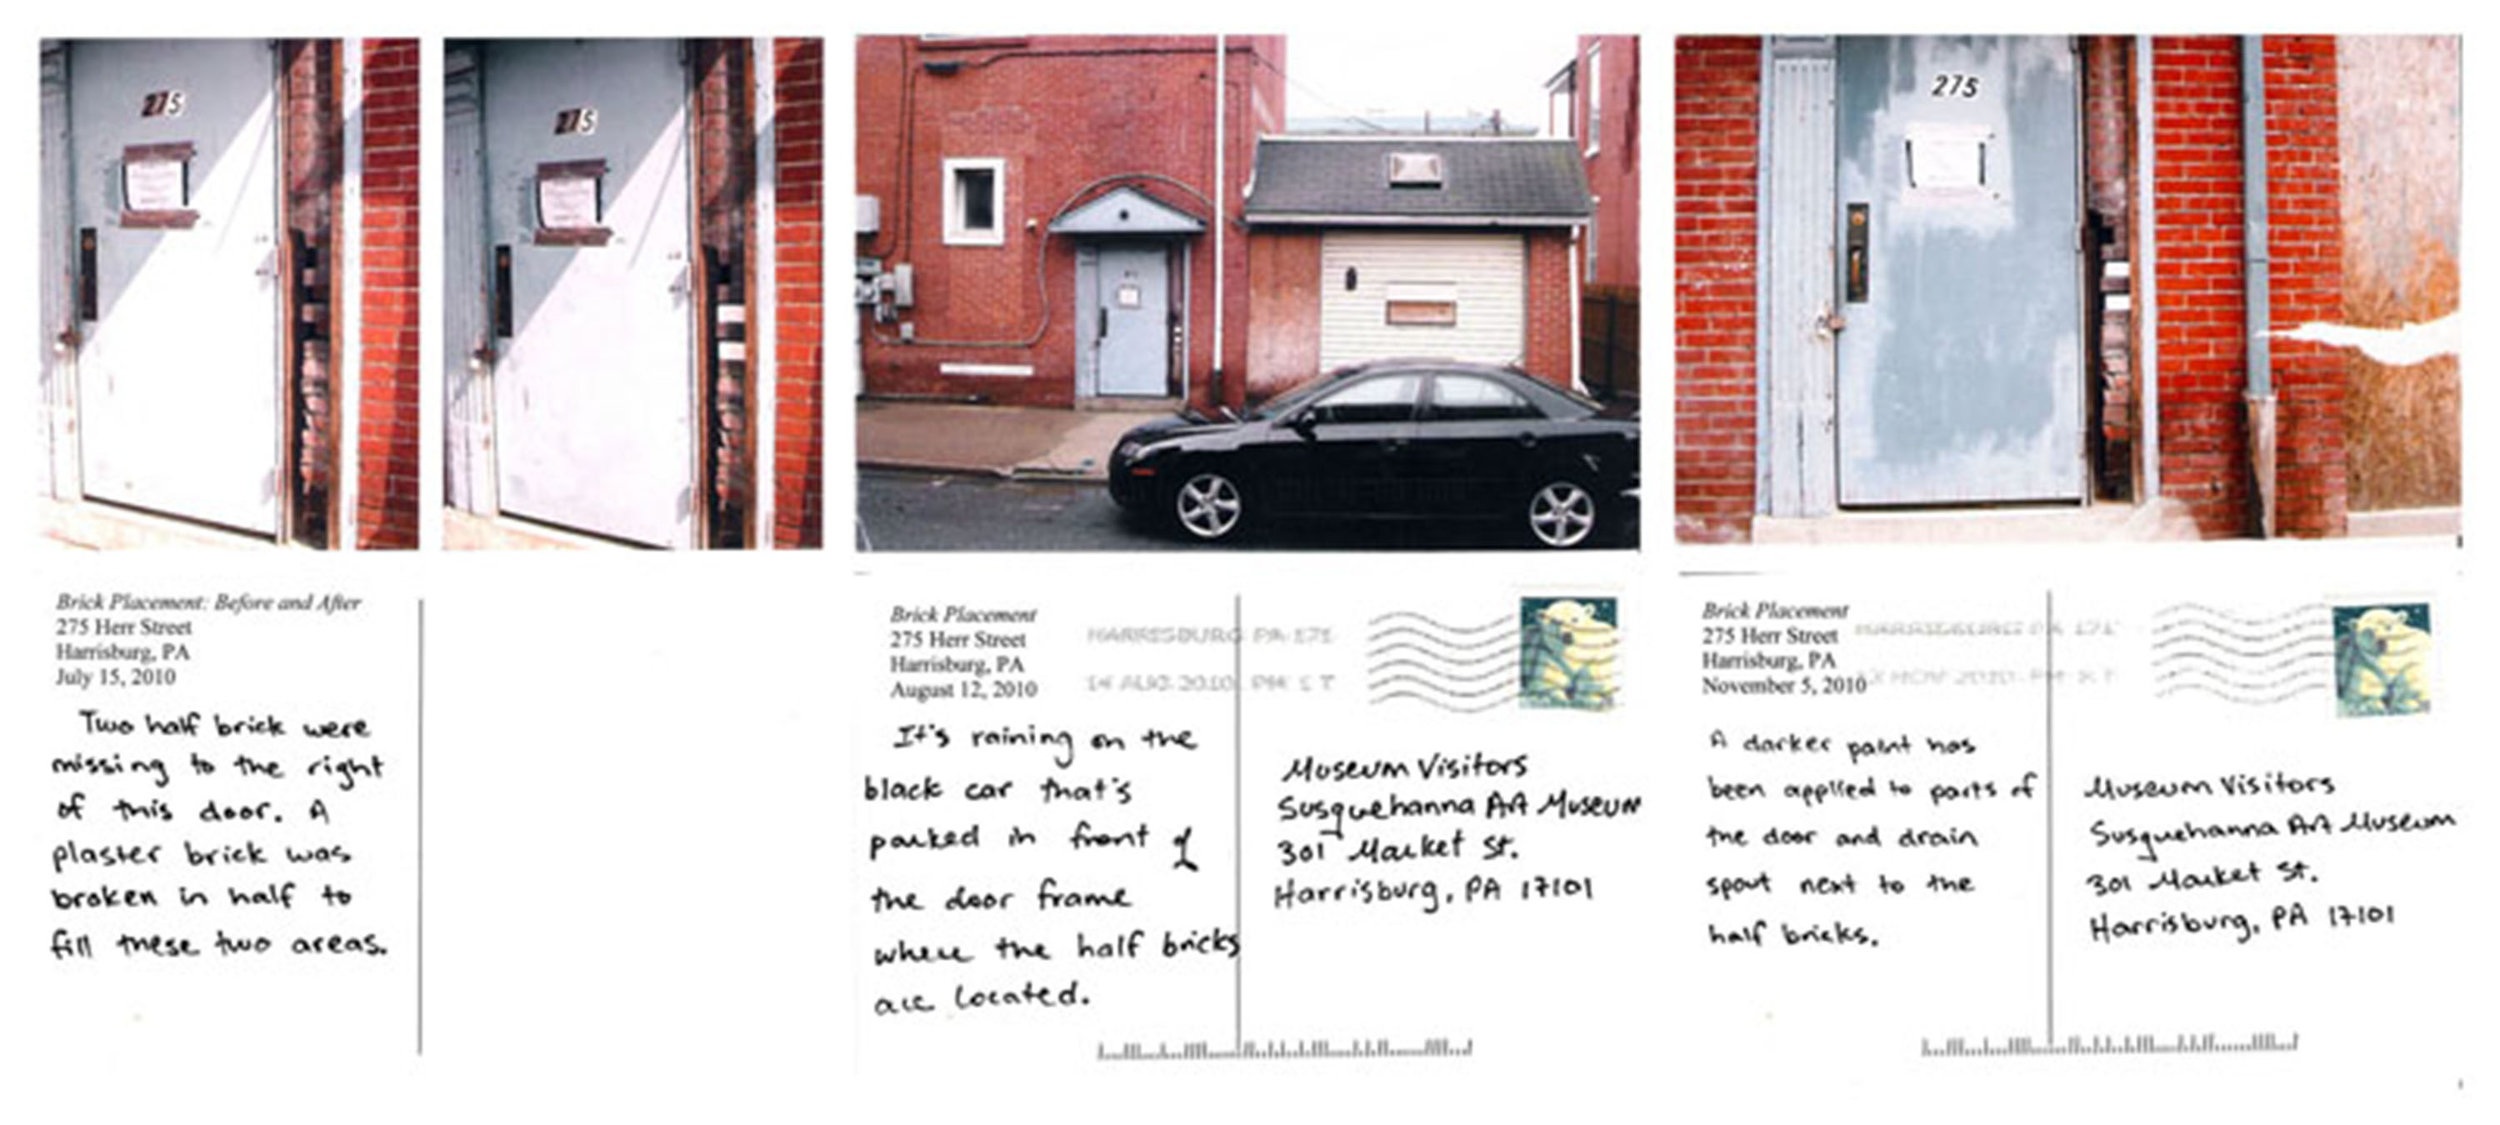 275
275
275
Brick Placement: Before and After
275 Herr Street
Harrisburg, PA
July 15, 2010
Two half brick were
missing to the right
of this door. A
plaster brick was
broken in half to
fill these two areas.
Brick Placement
275 Herr Street
Harrisburg, PA
August 12, 2010
HARRISBURG PA 171
14 AUG 2010 PM
It's raining on the
black car that's
parked in front of
the door frame
where the half bricks
are located.
Museum Visitors
Susquehanna Art Museum
301 Market St.
Harrisburg, PA 17101
Brick Placement
275 Herr Street
Harrisburg, PA
November 5, 2010
HARRISBURG PA 171
NOV 2010 PM
A darker paint has
been applied to parts of
the door and drain
spout next to the
half bricks.
Museum Visitors
Susquehanna Art Museum
301 Market St.
Harrisburg, PA 17101